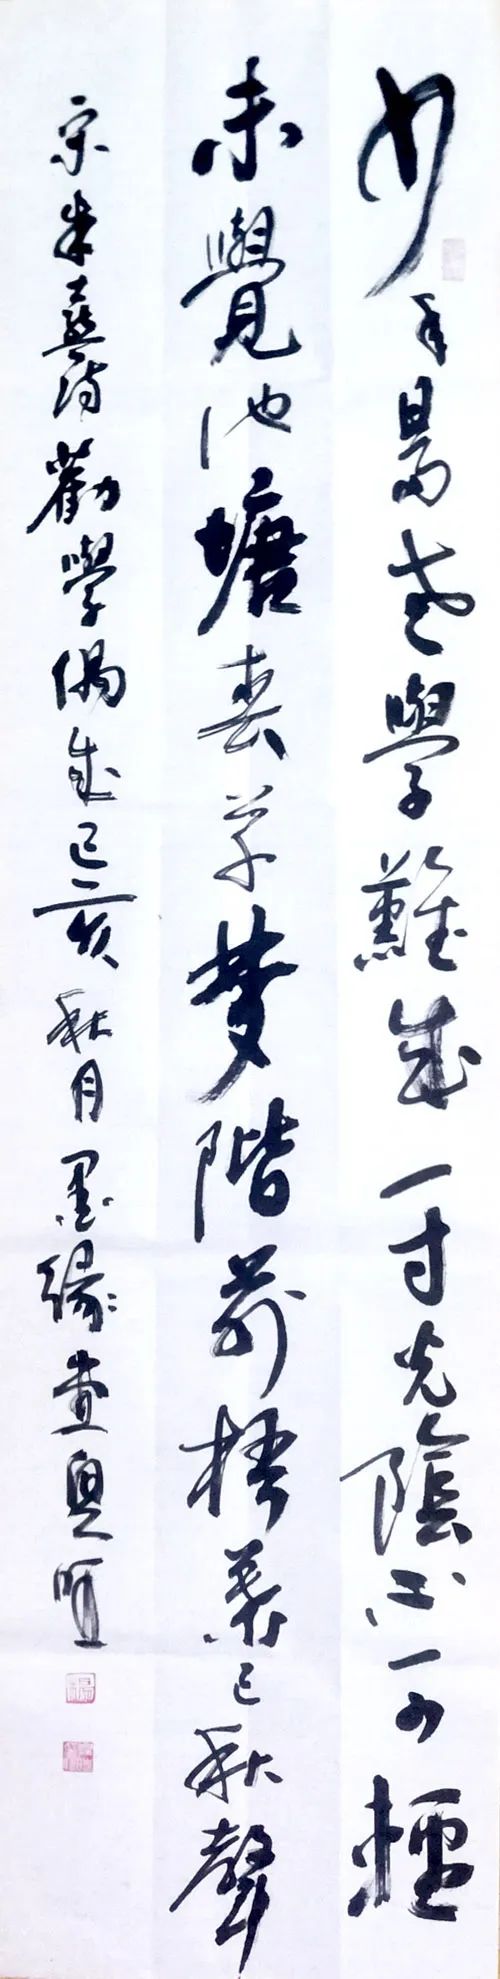 少年易老學難成一寸光陰不可輕
未覺池塘春草夢階前梧葉已秋聲
宋朱熹詩勸學偶成己亥秋月墨緣